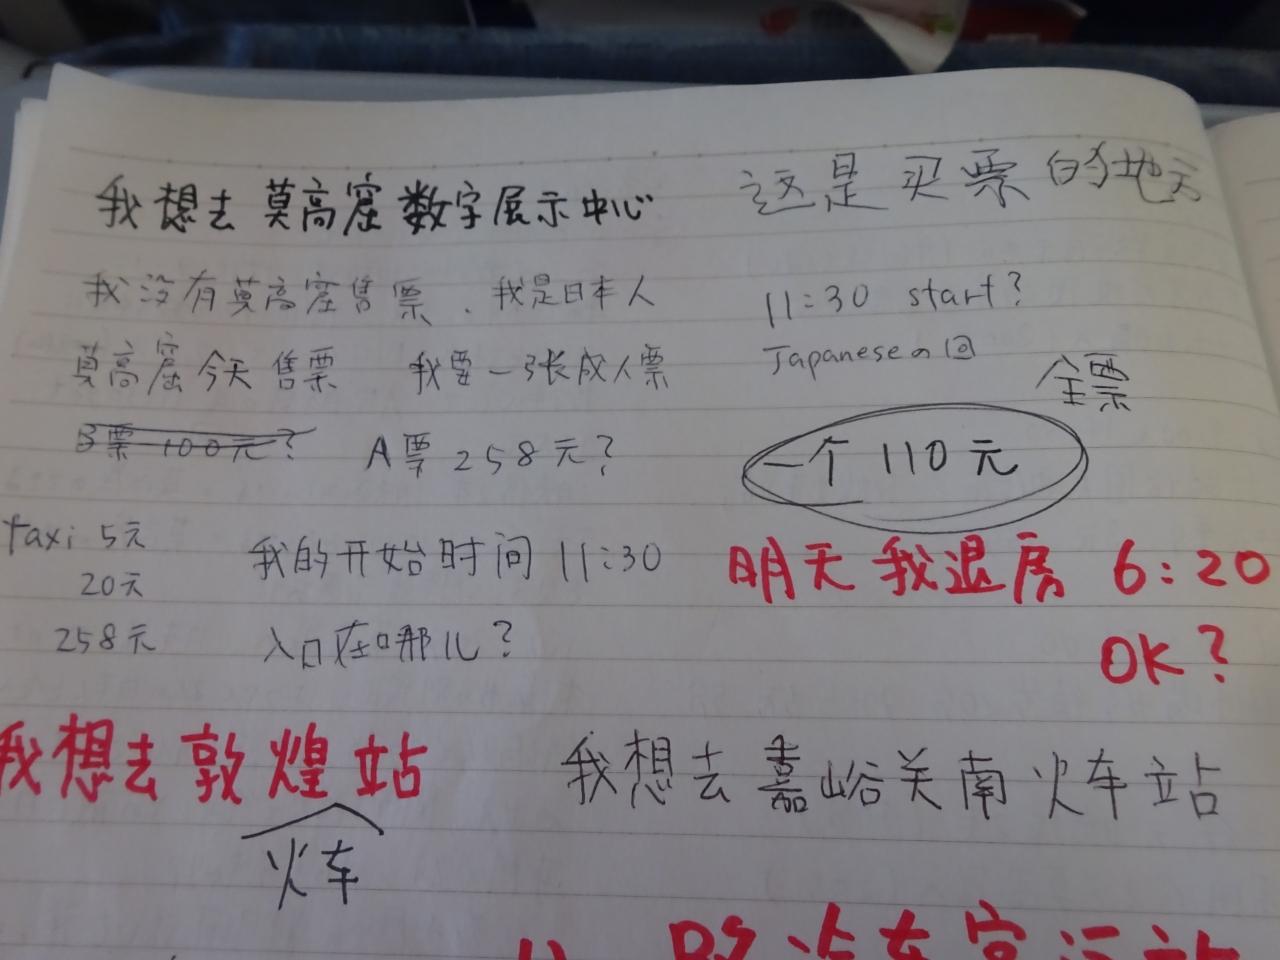 我想去莫高窟数字展示中心
我没有莫高窟售票.我是日本人
莫高窟今天售票 我要一张成人票
B票100元? A票258元?
taxi 5元
20元
258元
我的开始时间 11:30
入口在哪儿?
我想去敦煌站
火车
这是买票的地
11:30 start?
Japaneseの回
全票
一个 110元
明天我退房 6:20
OK?
我想去嘉峪关南火车站